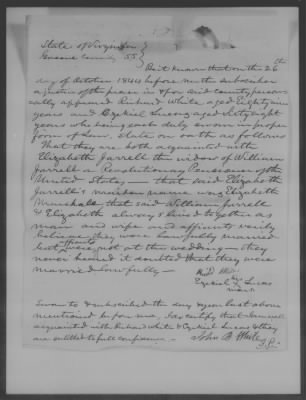 State of Virginia }
Greene County SS }
Be it known that on the 26th
day of October 1844 before me the subscriber
a justice of the peace in & for said county person
ally appeared Richard White aged Eighty nine
years and Ezekiel Lucas aged sixty eight
years who being each duly sworn in proper
form of law, State on oath as follows
That they are both acquainted with
Elizabeth Jarrell the widow of William
Jarrell a Revolutionary Pensioner of the
United States — that said Elizabeth
Jarrell's maiden name was Elizabeth
Marshall that said William Jarrell
& Elizabeth always lived together as
man and wife and affiants verily
believe they were lawfully married
but were not at the wedding — they
never heard it doubted that they were
married lawfully —
his
Ezekiel Lucas
mark
Sworn to & subscribed the day & year last above
mentioned before me, & I certify that I am well
acquainted with Richard White & Ezekiel Lucas & they
are entitled to full confidence —
John B White
J.P.